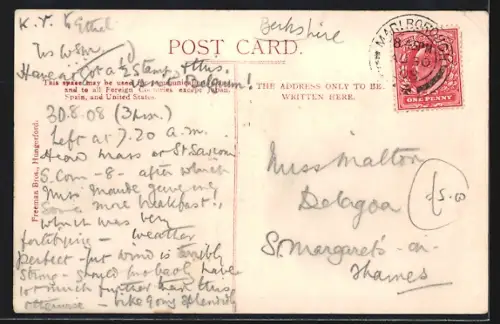 K.Y. to Ethel
Berkshire
POST CARD.
Have a ½ Stamp this
Belgium!
This space may be used for communication
and to all Foreign Countries except Japan,
Spain, and United States.
THE ADDRESS ONLY TO BE
WRITTEN HERE.
MARLBOROUGH
ONE PENNY
30.8.08 (3 p.m.)
Left at 7.20 a.m.
Heard mass at St Saviours
S. Com - 8 - after which
Miss Maude gave me
some more breakfast!,
which was very
fortifying - weather
perfect - put wind is terribly
strong - should probably have
got much further than this
otherwise - bike going splendidly
Freeman Bros., Hungerford.
Miss Malton
Delagoa
St. Margaret's-on-
Thames